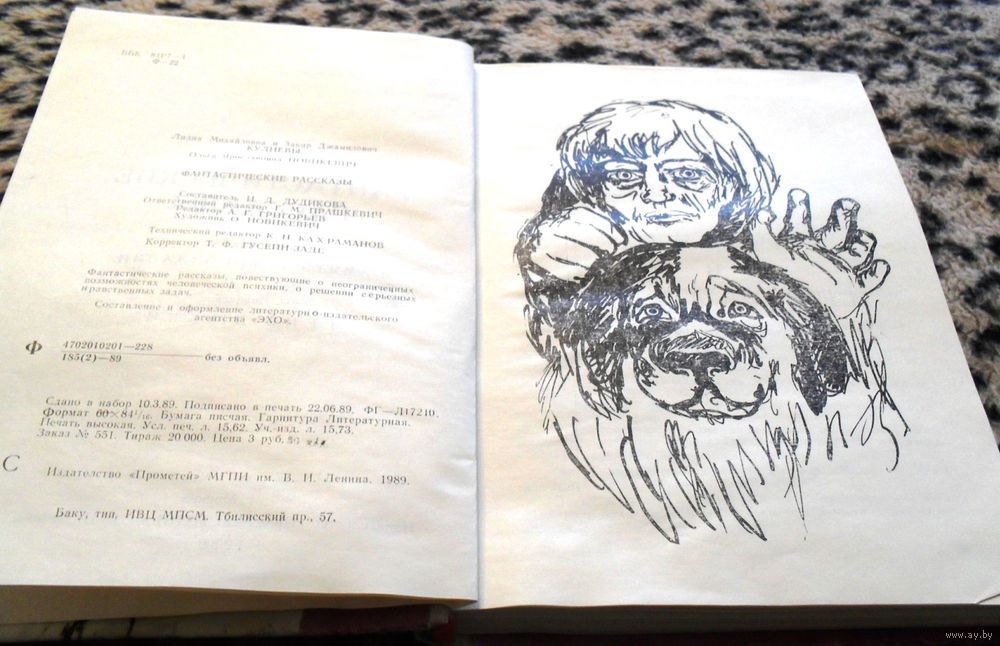 ББК
Ф—22
Лидия Михайловна и Закир Джамилович
КУЛИЕВЫ
Ольга НОВИКЕВИЧ
ФАНТАСТИЧЕСКИЕ РАССКАЗЫ
Составитель Н. Д. ДУДИКОВА
Ответственный редактор Г. М. ПРАШКЕВИЧ
Редактор А. Г. ГРИГОРЬЕВ
Художник О НОВИКЕВИЧ
Технический редактор К. Н КАХРАМАНОВ
Корректор Т. Ф. ГУСЕЙН-ЗАДЕ
Фантастические рассказы, повествующие о неограниченных
возможностях человеческой психики, о решении серьезных
нравственных задач.
Составление и оформление литературно-издательского
агентства «ЭХО».
Ф 4702010201—228
185(2)—89 без объявл.
Сдано в набор 10.3.89. Подписано в печать 22.06.89. ФГ—Л17210.
Формат 60×84¹/₁₆. Бумага писчая. Гарнитура Литературная.
Печать высокая. Усл. печ. л. 15,62. Уч. изд. л. 15,73.
Заказ № 551. Тираж 20 000. Цена 3 руб.
С
Издательство «Прометей» МГПИ им. В. И. Ленина. 1989.
Баку, тип. ИВЦ МПСМ. Тбилисский пр., 57.
www.ay.by